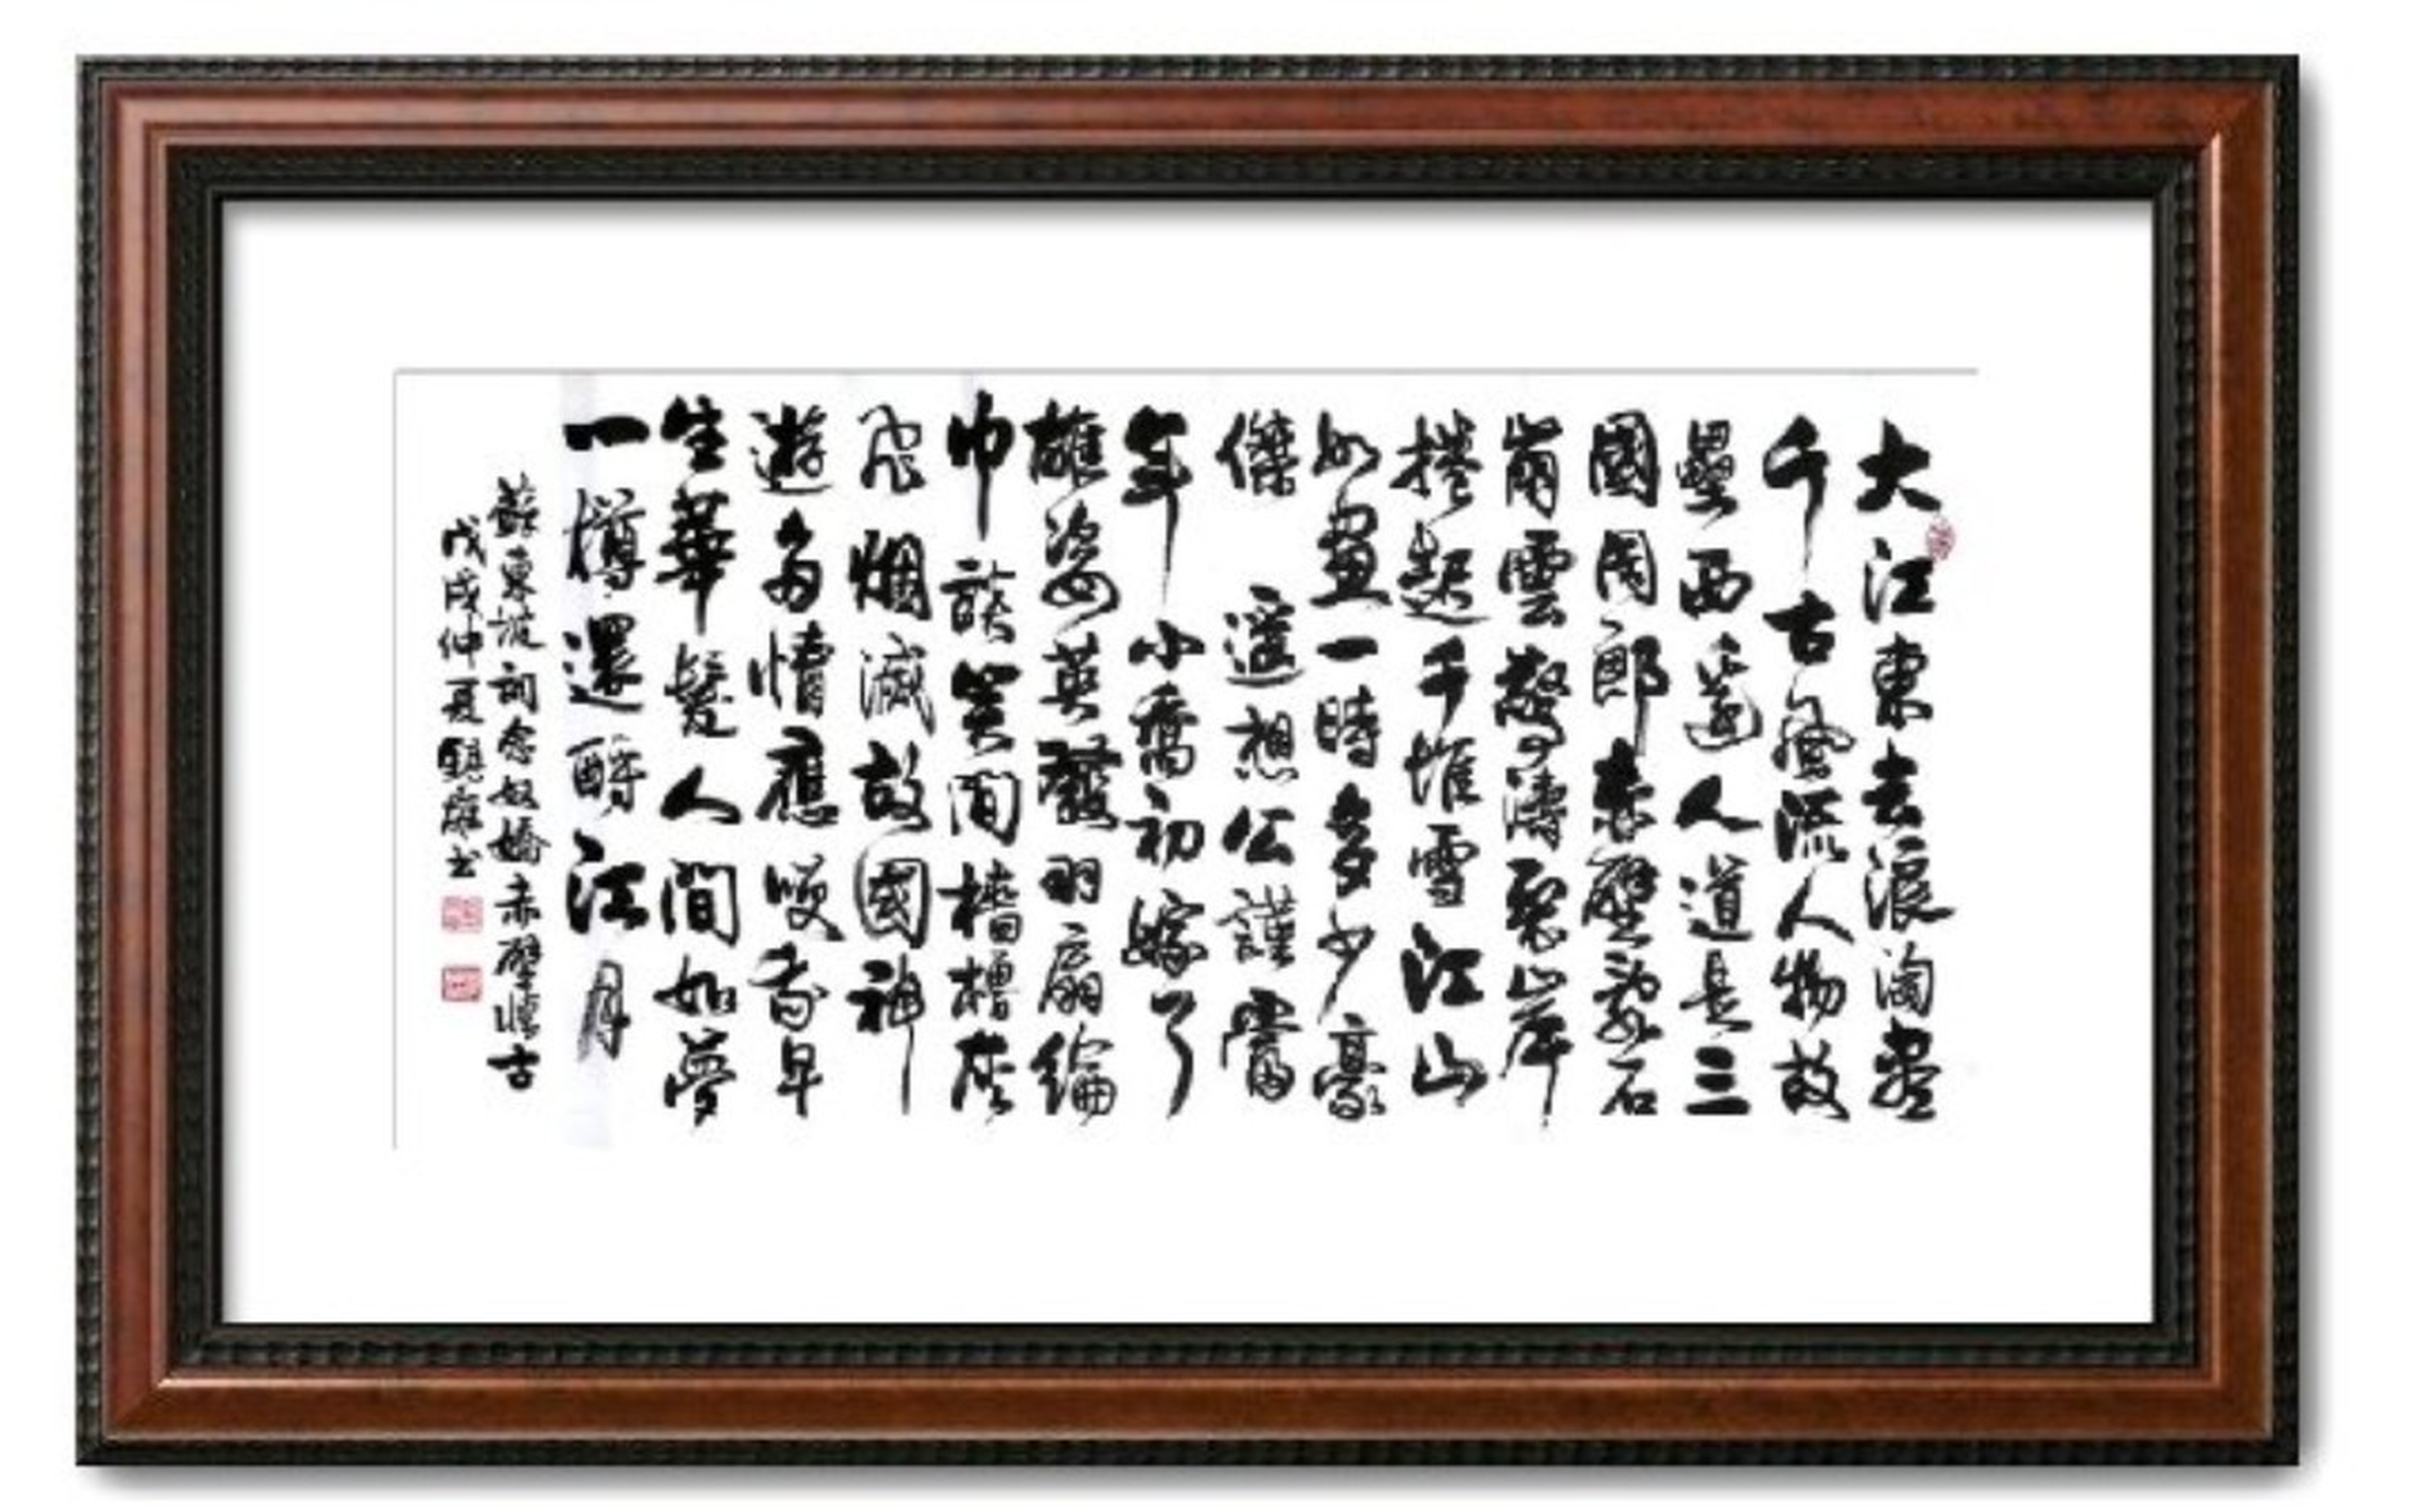 大江東去浪淘盡
千古風流人物故
壘西邊人道是三
國周郎赤壁亂石
崩雲驚濤裂岸
捲起千堆雪江山
如畫一時多少豪
傑遥想公謹當
年小喬初嫁了
雄姿英發羽扇綸
巾談笑間檣櫓灰
飛烟滅故國神
遊多情應笑我早
生華髮人間如夢
一樽還酹江月
蘇東坡詞念奴嬌赤壁懷古
戊戌仲夏鎮雄书